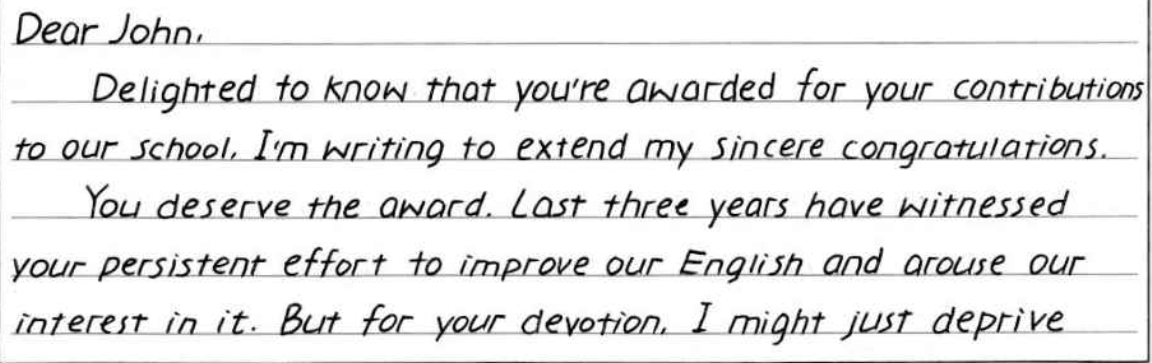 Dear John,
Delighted to know that you're awarded for your contributions
to our school, I'm writing to extend my sincere congratulations.
You deserve the award. Last three years have witnessed
your persistent effort to improve our English and arouse our
interest in it. But for your devotion, I might just deprive